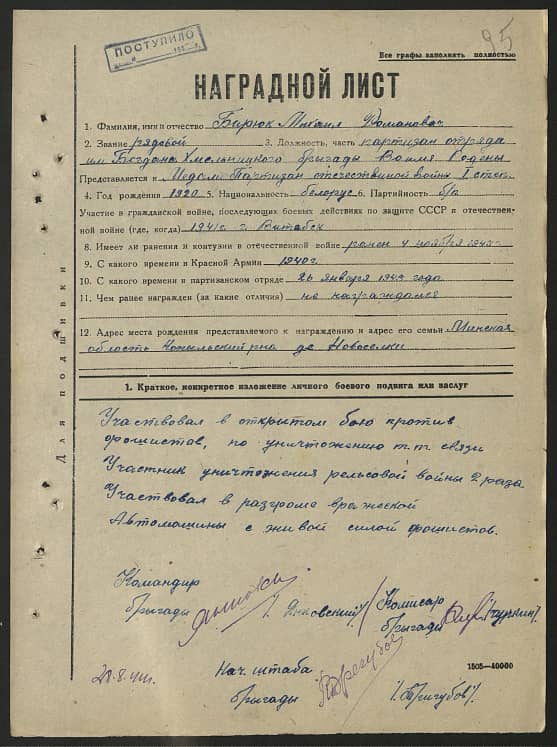 95
ПОСТУПИЛО
Все графы заполнять полностью
НАГРАДНОЙ ЛИСТ
1. Фамилия, имя и отчество Бирюк Михаил Романович
2. Звание рядовой 3. Должность, часть партизан отряда
им Богдана Хмельницкого бригады Воиля Родены
Представляется к Медали Партизан отечественой войны I степ.
4. Год рождения 1920 5. Национальность белорус 6. Партийность б/п
Участие в гражданской войне, последующих боевых действиях по защите СССР и отечествен-
ной войне (где, когда) 1941 г. г. Витебск
8. Имеет ли ранения и контузии в отечественной войне ранен 4 ноября 1943
9. С какого времени в Красной Армии 1940 г.
10. С какого времени в партизанском отряде 26 января 1943 года
11. Чем ранее награжден (за какие отличия) не награждался
12. Адрес места рождения представляемого к награждению и адрес его семьи Минская
область Копыльский р-на де Новоселки
Для подшивки
1. Краткое, конкретное изложение личного боевого подвига или заслуг
Участвовал в открытом бою против
фошистов, по уничтожению т.т. связи
Участник уничтожения рельсовой войны 2 раза
Участвовал в разгроме вражеской
Автомашины с живой силой фошистов.
Командир
брыгады /Янковский/
Комисар
брыгады
20.8.44г.
Нач. штаба
брыгады /Трегубов/.
1505—40000